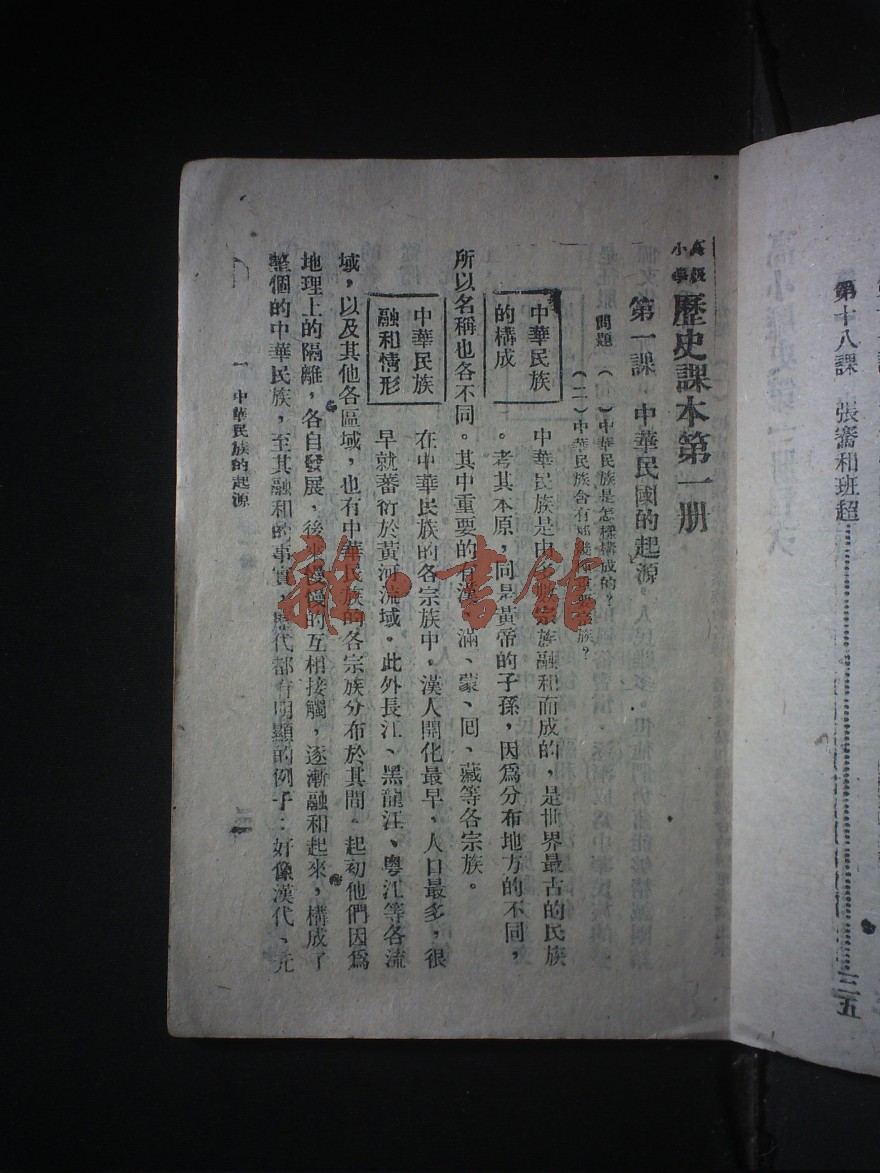 第十八課　張騫和班超………三五
高級小學
歷史課本第一册
第一課　中華民國的起源
問題　(一)中華民族是怎樣構成的？
(二)中華民族含有那幾種重要宗族？
中華民族的構成
中華民族是由多數宗族融和而成的，是世界最古的民族
。考其本原，同是黃帝的子孫，因爲分布地方的不同，
所以名稱也各不同。其中重要的有漢、滿、蒙、囘、藏等各宗族。
中華民族融和情形
在中華民族的各宗族中，漢人開化最早，人口最多，很
早就蕃衍於黃河流域。此外長江、黑龍江、粵江等各流
域，以及其他各區域，也有中華民族的各宗族分布於其間。起初他們因爲
地理上的隔離，各自發展，後來慢慢的互相接觸，逐漸融和起來，構成了
整個的中華民族，至其融和的事實，歷代都有明顯的例子：好像漢代、元
一　中華民族的起源
雜·書館